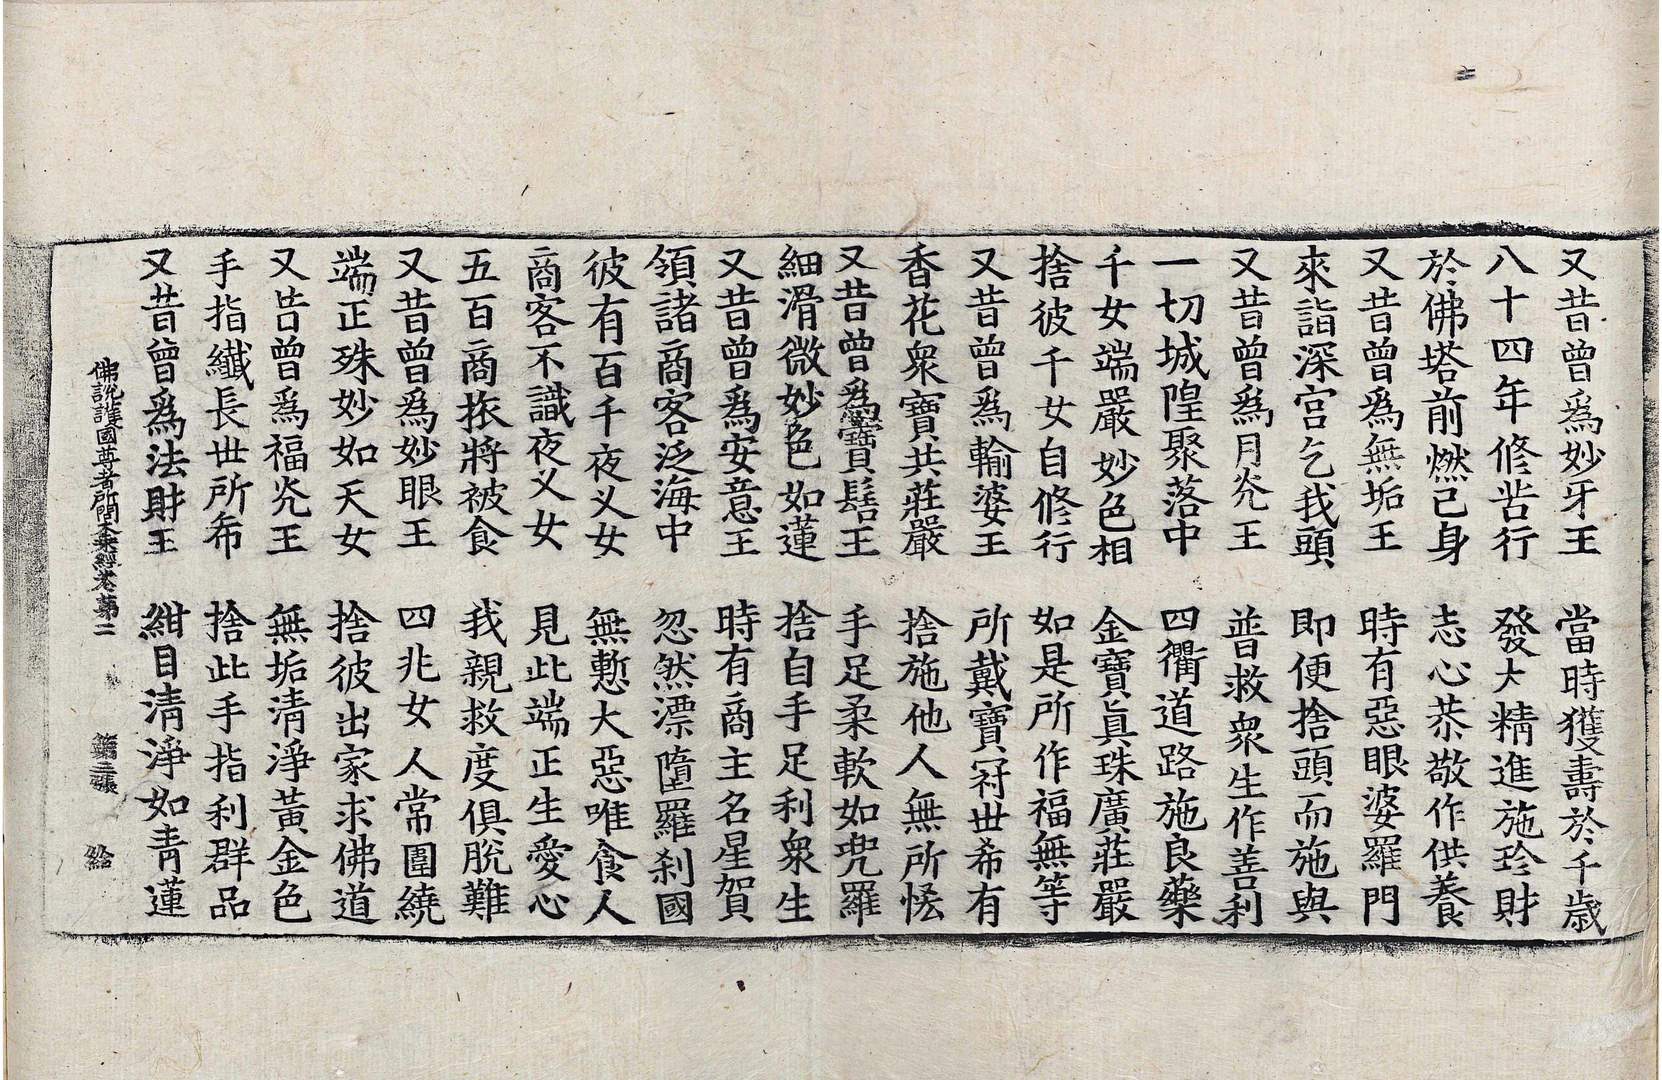 又昔曾爲妙牙王 當時獲壽於千歲
八十四年修苦行 發大精進施珍財
於佛塔前燃己身 志心恭敬作供養
又昔曾爲無垢王 時有惡眼婆羅門
來詣深宮乞我頭 即便捨頭而施與
又昔曾爲月光王 普救衆生作善利
一切城隍聚落中 四衢道路施良藥
千女端嚴妙色相 金寶眞珠廣莊嚴
捨彼千女自修行 如是所作福無等
又昔曾爲輸婆王 所戴寶冠世希有
香花衆寶共莊嚴 捨施他人無所悋
又昔曾爲寶髻王 手足柔軟如兜羅
細滑微妙色如蓮 捨自手足利衆生
又昔曾爲安意王 時有商主名星賀
領諸商客泛海中 忽然漂墮羅刹國
彼有百千夜叉女 無慙大惡唯食人
商客不識夜叉女 見此端正生愛心
五百商旅將被食 我親救度俱脫難
又昔曾爲妙眼王 四兆女人常圍繞
端正殊妙如天女 捨彼出家求佛道
又昔曾爲福光王 無垢清淨黃金色
手指纖長世所希 捨此手指利群品
又昔曾爲法財王 紺目清淨如青蓮
佛說護國尊者所問大乘經卷第二 第三張 給